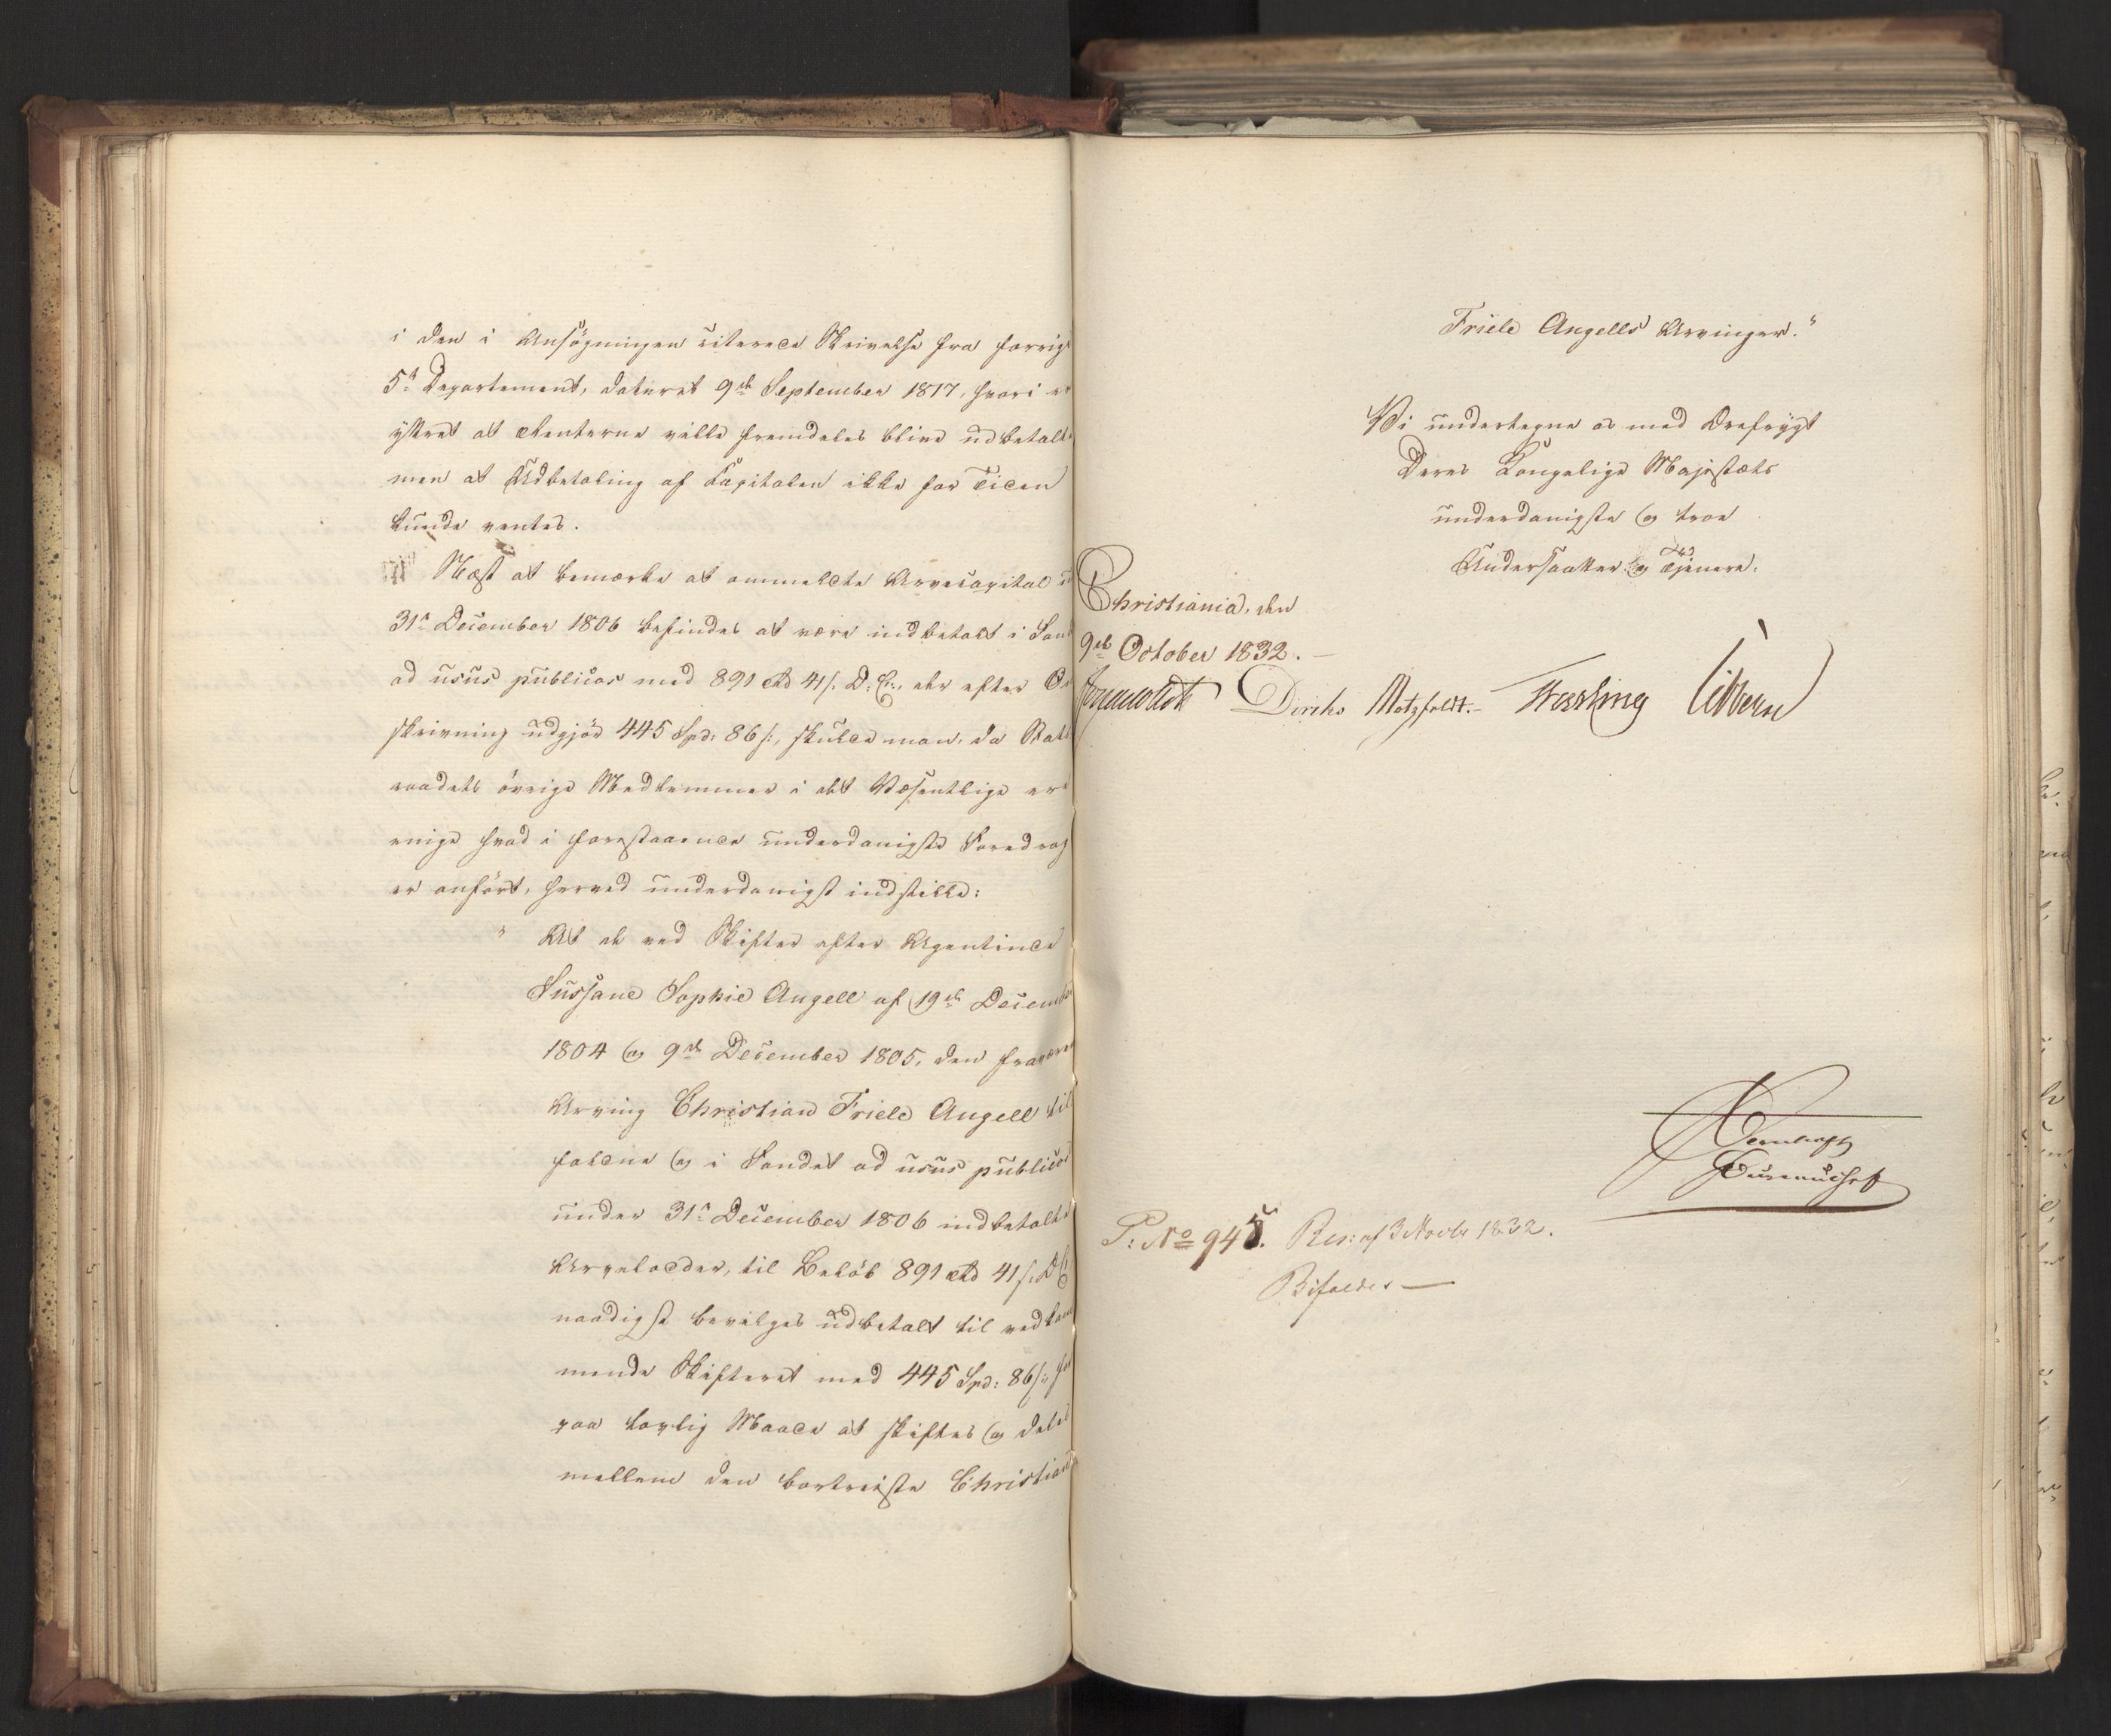 i den i Ansøgningen citerede Skrivelse fra forrige
5te Departement, dateret 9de September 1817, hvori er
yttret at Renterne ville fremdeles blive udbetalte
men at Udbetaling af Capitalen ikke for Tiden
kunde ventes.
Næst at bemærke at ommeldte Arvecapital
31te December 1806 befindes at være indbetalt i Fond
ad usus publicos med 891 Rd 41 s. D: C:, der efter
skrivning udgjør 445 Spd: 86 s:, skulde man, da Stats
raadets øvrige Medlemmer i det Væsentlige ere
enige hvad i forestaaende underdanigste Foredrag
er anført, herved underdanigst indstille:
" At de ved Skifter efter Agentinde
Sussane Sophie Angell af 19de December
1804 og 9de December 1805, den fraværende
Arving Christian Friele Angell til
faldne og i Fondet ad usus publicos
under 31te December 1806 indbetalte
Arvelodder, til Beløb 891 Rd 41 s. D C
naadigst bevilges udbetalt til vedkom
mende Skifteret med 445 Spd: 86 s: for
paa lovlig Maade at skiftes og deles
mellem den bortreiste Christian
Friele Angells Arvinger."
Vi undertegne os med Ærefrygt
Deres Kongelige Majestæts
underdanigste og troe
Undersaatter og Tjenere.
Christiania, den
9de October 1832. —
Diriks Motzfeldt. Fasting Sibbern
P: No 945. Res: af 3 Novbr 1832.
Bifaldes —